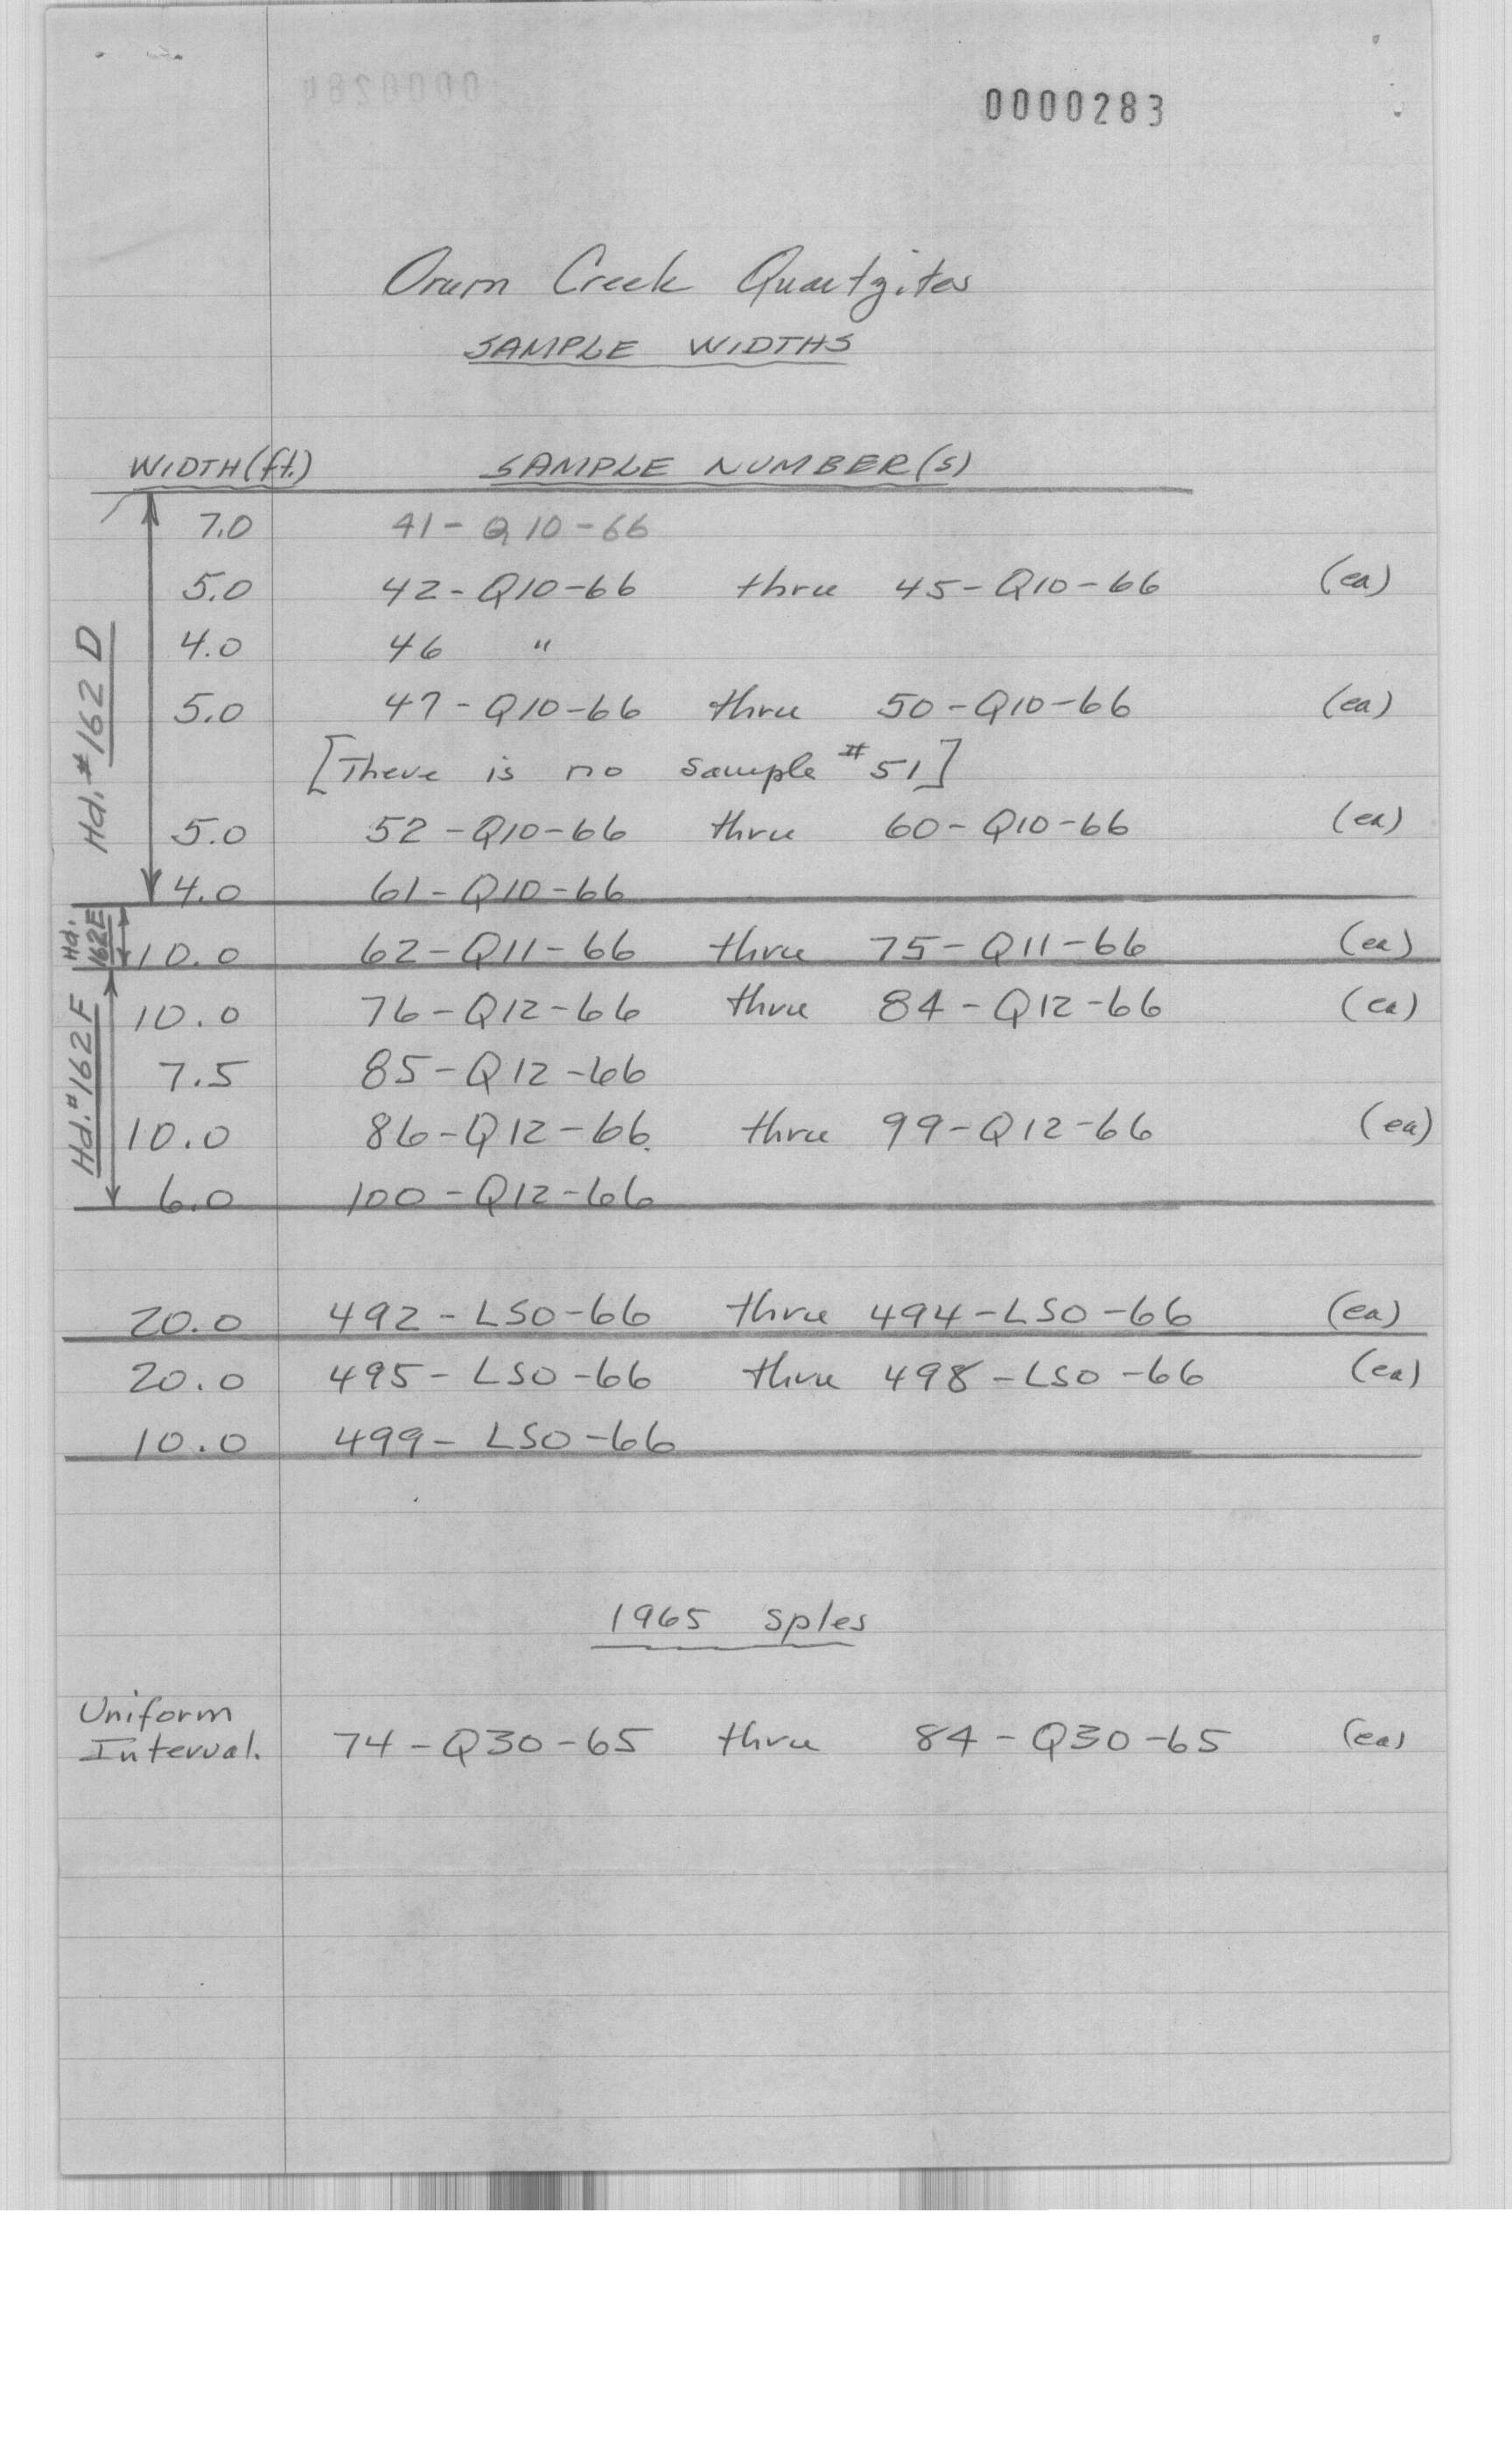 0000283
Orum Creek Quartzites
SAMPLE WIDTHS
WIDTH (ft.) SAMPLE NUMBER(S)
Hd. #162 D
7.0 41-Q10-66
5.0 42-Q10-66 thru 45-Q10-66 (ea)
4.0 46 "
5.0 47-Q10-66 thru 50-Q10-66 (ea)
[There is no sample #51]
5.0 52-Q10-66 thru 60-Q10-66 (ea)
4.0 61-Q10-66
Hd. 162E
10.0 62-Q11-66 thru 75-Q11-66 (ea)
Hd. #162 F
10.0 76-Q12-66 thru 84-Q12-66 (ea)
7.5 85-Q12-66
10.0 86-Q12-66 thru 99-Q12-66 (ea)
6.0 100-Q12-66
20.0 492-LSO-66 thru 494-LSO-66 (ea)
20.0 495-LSO-66 thru 498-LSO-66 (ea)
10.0 499-LSO-66
1965 Sples
Uniform
Interval. 74-Q30-65 thru 84-Q30-65 (ea)